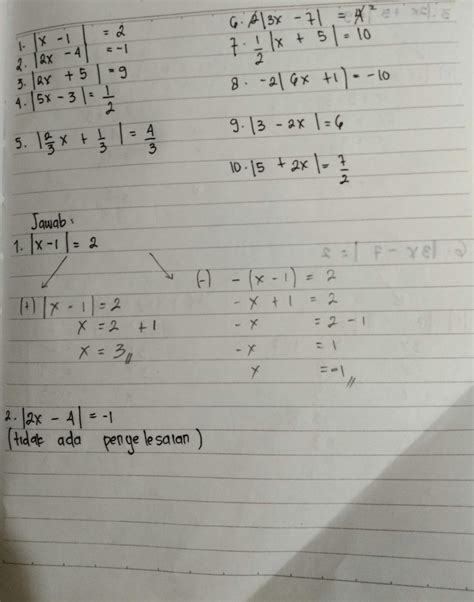 1. |x - 1| = 2
2. |2x - 4| = -1
3. |2x + 5| = 9
4. |5x - 3| = 1/2
5. |2/3 x + 1/3| = 4/3
6. 2|3x - 7| = 4 2
7. 1/2 |x + 5| = 10
8. -2|6x + 1| = -10
9. |3 - 2x| = 6
10. |5 + 2x| = 7/2
Jawab:
1. |x - 1| = 2
(+) |x - 1| = 2
x = 2 + 1
x = 3
(-) - (x - 1) = 2
- x + 1 = 2
- x = 2 - 1
- x = 1
x = -1
2. |2x - 4| = -1
(tidak ada penyelesaian)